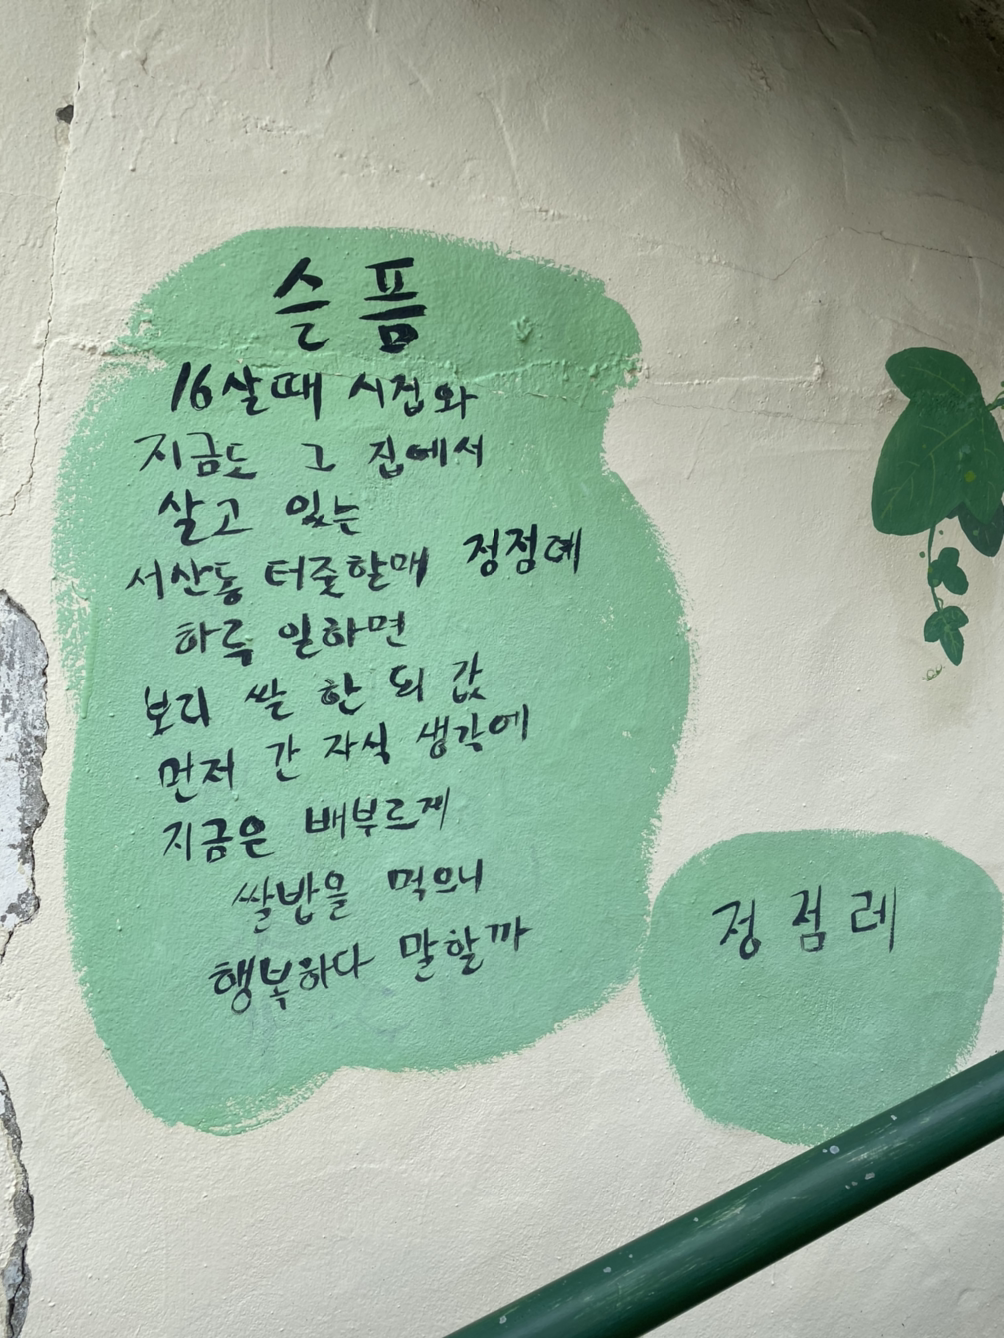 슬픔
16살때 시집와
지금도 그 집에서
살고 있는
서산동 터줄할매 정점례
하루 일하면
보리 쌀 한 되 값
먼저 간 자식 생각에
지금은 배부르게
쌀밥을 먹으니
행복하다 말할까
정점례